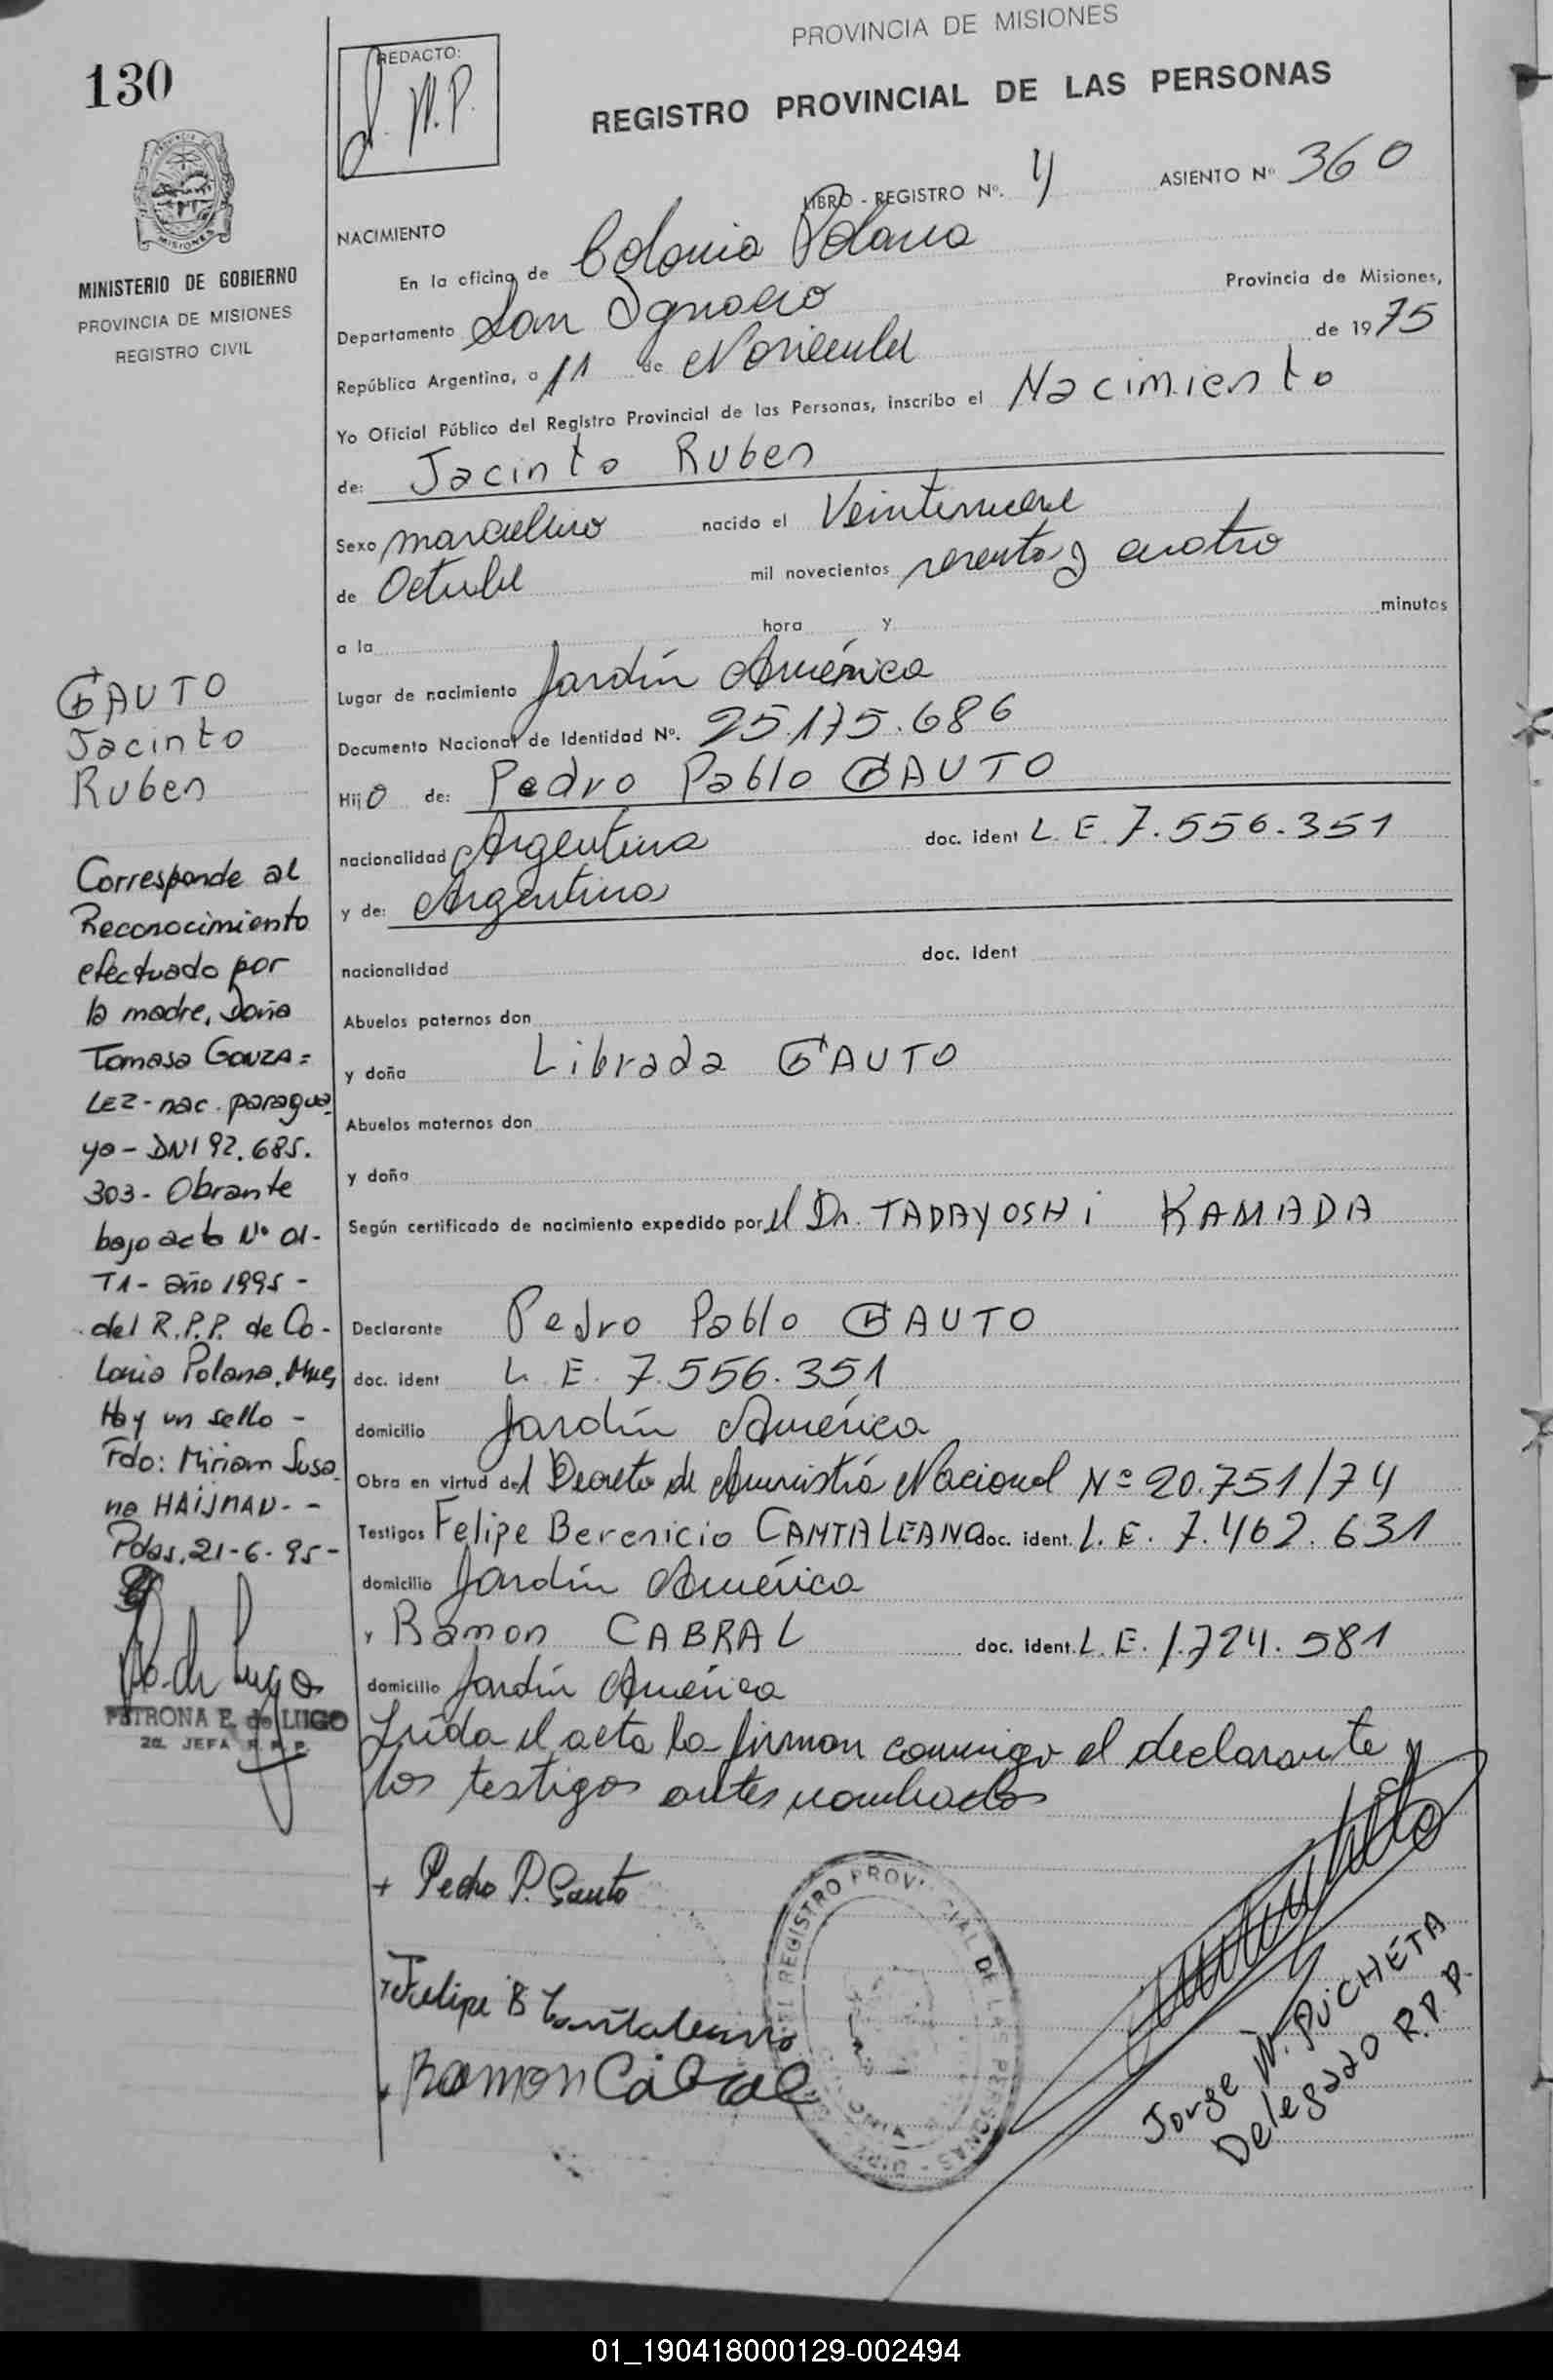 130
REDACTO:
J. W. P.
PROVINCIA DE MISIONES
REGISTRO PROVINCIAL DE LAS PERSONAS
LIBRO - REGISTRO Nº. 4 ASIENTO Nº 360
MINISTERIO DE GOBIERNO
PROVINCIA DE MISIONES
REGISTRO CIVIL
NACIMIENTO
En la oficina de Colonia Polana
Departamento San Ignacio Provincia de Misiones,
República Argentina, a 11 de Noviembre de 1975
Yo Oficial Público del Registro Provincial de las Personas, inscribo el Nacimiento
de: Jacinto Ruben
Sexo masculino nacido el Veintinueve
de Octubre mil novecientos setenta y cuatro
a la hora y minutos
Lugar de nacimiento Jardín América
Documento Nacional de Identidad Nº. 25.175.686
Hijo de: Pedro Pablo GAUTO
nacionalidad Argentina doc. ident L. E. 7.556.351
y de: Argentina
nacionalidad doc. ident
Abuelos paternos don
y doña Librada G'AUTO
Abuelos maternos don
y doña
Según certificado de nacimiento expedido por el Dr. TADAYOSHi KAMADA
Declarante Pedro Pablo GAUTO
doc. ident L. E. 7.556.351
domicilio Jardín América
Obra en virtud del Decreto de Amnistía Nacional Nº 20.751/74
Testigos Felipe Berenicio CANTALEANO doc. ident. L. E. 7.462.631
domicilio Jardín América
y Ramon CABRAL doc. ident. L. E. 1.724.581
domicilio Jardín América
Leida el acta la firman conmigo el declarante y
los testigos antes nombrados
GAUTO
Jacinto
Ruben
Corresponde al
Reconocimiento
efectuado por
la madre, Doña
Tomasa GONZA=
LEZ - nac. paragua
ya - DNI 92.685.
303 - Obrante
bajo acta Nº 01-
T1 - año 1995 -
del R.P.P. de Co-
lonia Polana, Mnes,
Hay un sello -
Fdo: Miriam Susa
na HAIJMAN - -
Pdas, 21-6-95-
PETRONA E. de LUGO
2a. JEFA R.P.P.
+ Pedro P. Gauto
+ Felipe B Cantaleano
+ Ramon Cabral
REGISTRO PROVINCIAL DE LAS PERSONAS
Jorge W. PUCHETA
Delegado R.P.P.
01_190418000129-002494